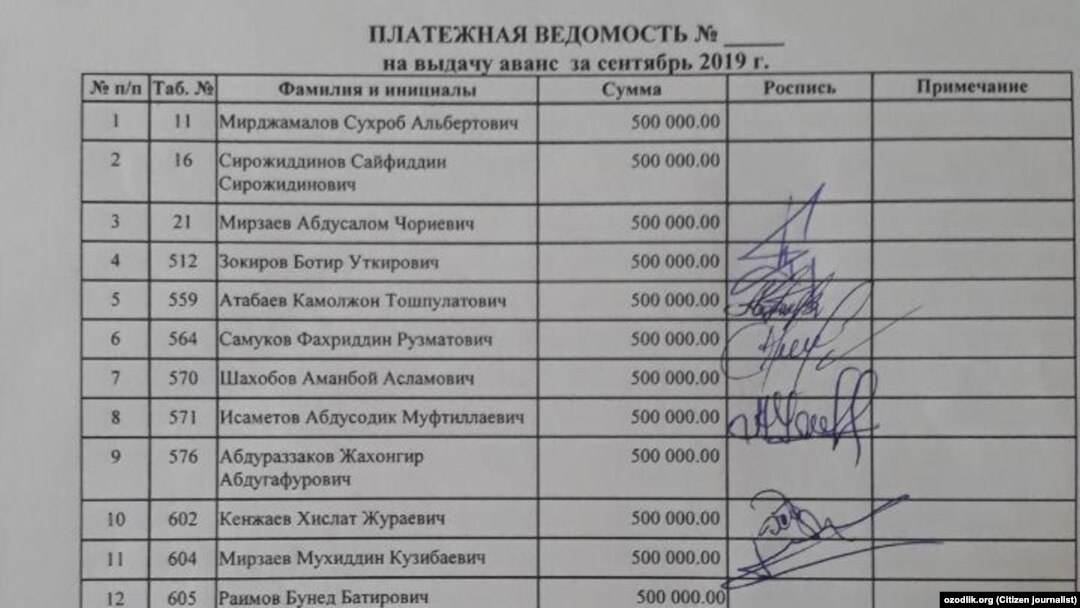 ПЛАТЕЖНАЯ ВЕДОМОСТЬ № _____
на выдачу аванс за сентябрь 2019 г.
№ п/п Таб. № Фамилия и инициалы Сумма Роспись Примечание
1 11 Мирджамалов Сухроб Альбертович 500 000.00
2 16 Сирожиддинов Сайфиддин 500 000.00
Сирожидинович
3 21 Мирзаев Абдусалом Чориевич 500 000.00
4 512 Зокиров Ботир Уткирович 500 000.00
5 559 Атабаев Камолжон Тошпулатович 500 000.00
6 564 Самуков Фахриддин Рузматович 500 000.00
7 570 Шахобов Аманбой Асламович 500 000.00
8 571 Исаметов Абдусодик Муфтиллаевич 500 000.00
9 576 Абдураззаков Жахонгир 500 000.00
Абдугафурович
10 602 Кенжаев Хислат Жураевич 500 000.00
11 604 Мирзаев Мухиддин Кузибаевич 500 000.00
12 605 Раимов Бунед Батирович 500 000.00
ozodlik.org (Citizen journalist)